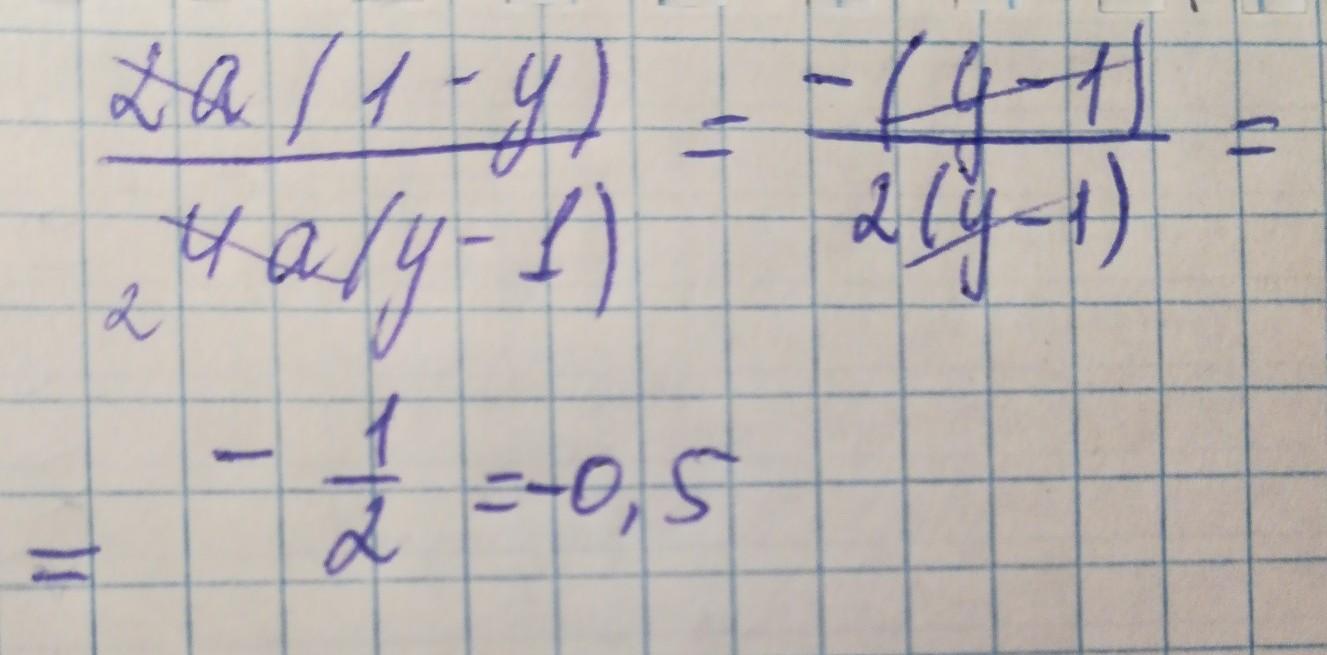 2a(1-y) / 4a(y-1) = -(y-1) / 2(y-1) =
2
= -1/2 = -0,5